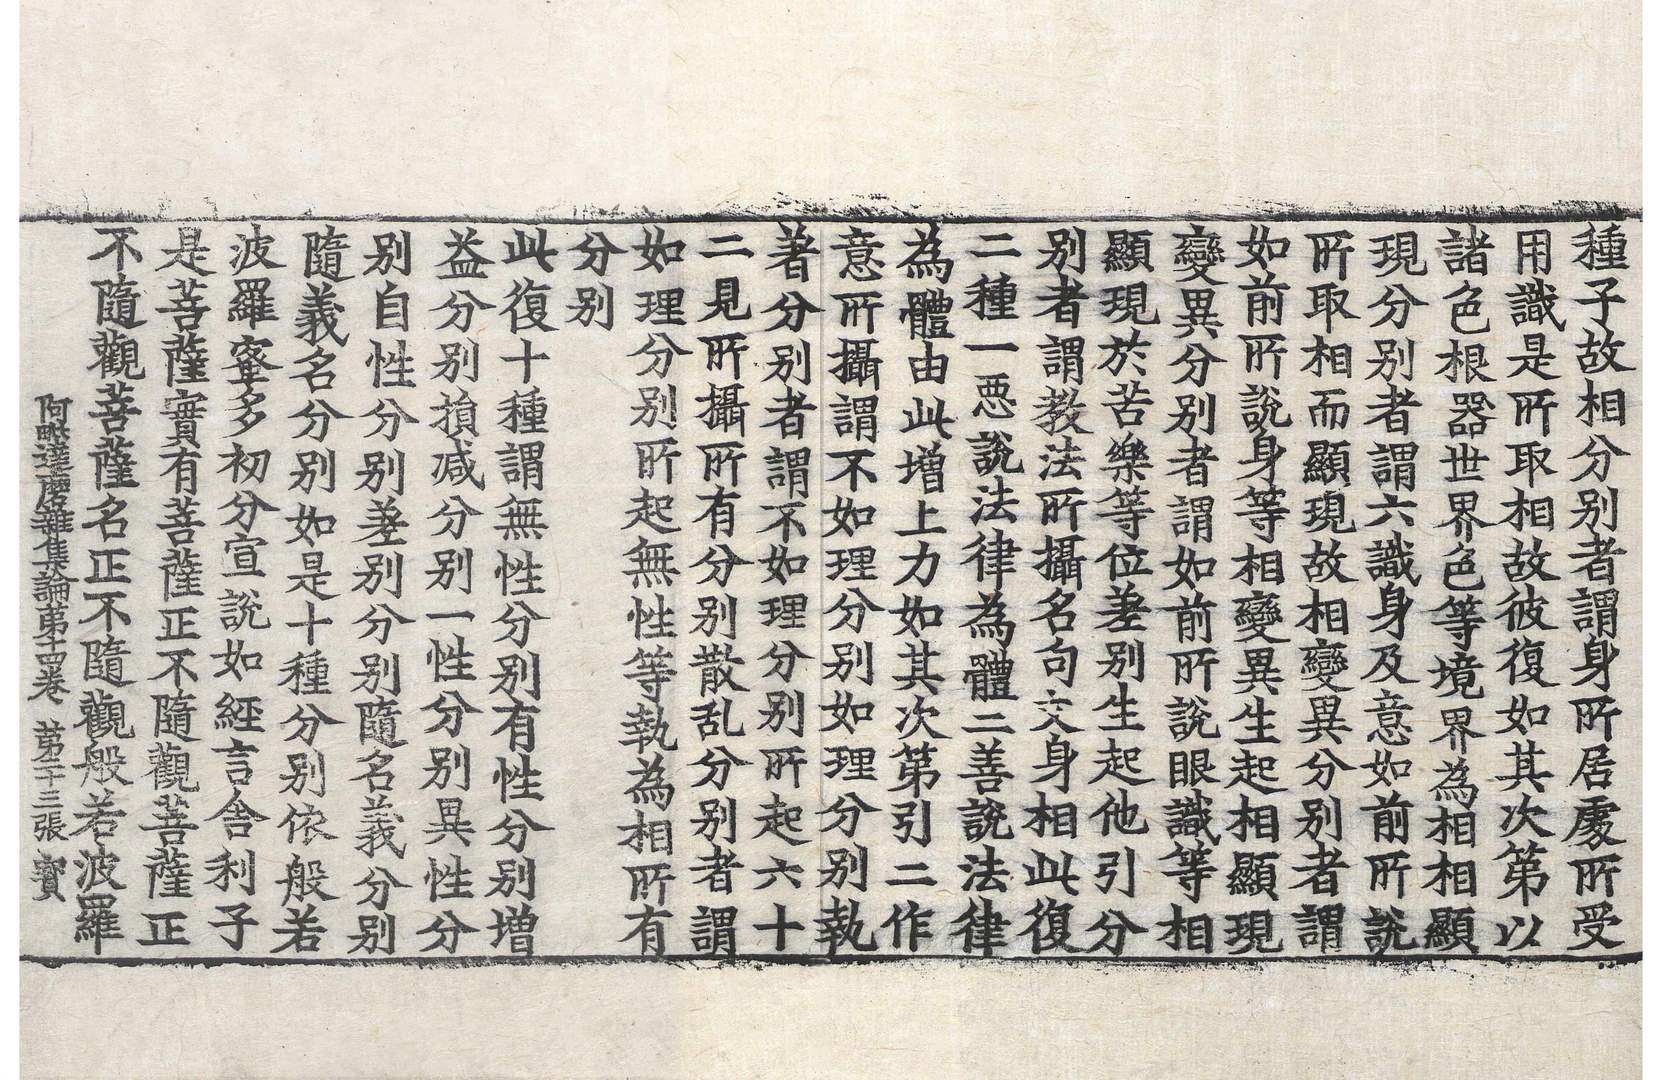 種子故相分別者謂身所居處所受
用識是所取相故彼復如其次第以
諸色根器世界色等境界為相相顯
現分別者謂六識身及意如前所說
所取相而顯現故相變異分別者謂
如前所說身等相變異生起相顯現
變異分別者謂如前所說眼識等相
顯現於苦樂等位差別生起他引分
別者謂教法所攝名句文身相此復
二種一惡說法律為體二善說法律
為體由此增上力如其次第引二作
意所攝謂不如理分別如理分別執
著分別者謂不如理分別所起六十
二見所攝所有分別散乱分別者謂
如理分別所起無性等執為相所有
分別
此復十種謂無性分別有性分別增
益分別損减分別一性分別異性分
別自性分別差別分別隨名義分別
隨義名分別如是十種分別依般若
波羅蜜多初分宣說如經言舍利子
是菩薩實有菩薩正不隨觀菩薩正
不隨觀菩薩名正不隨觀般若波羅
阿毗達磨雜集論第十四卷 第二十三張 賓